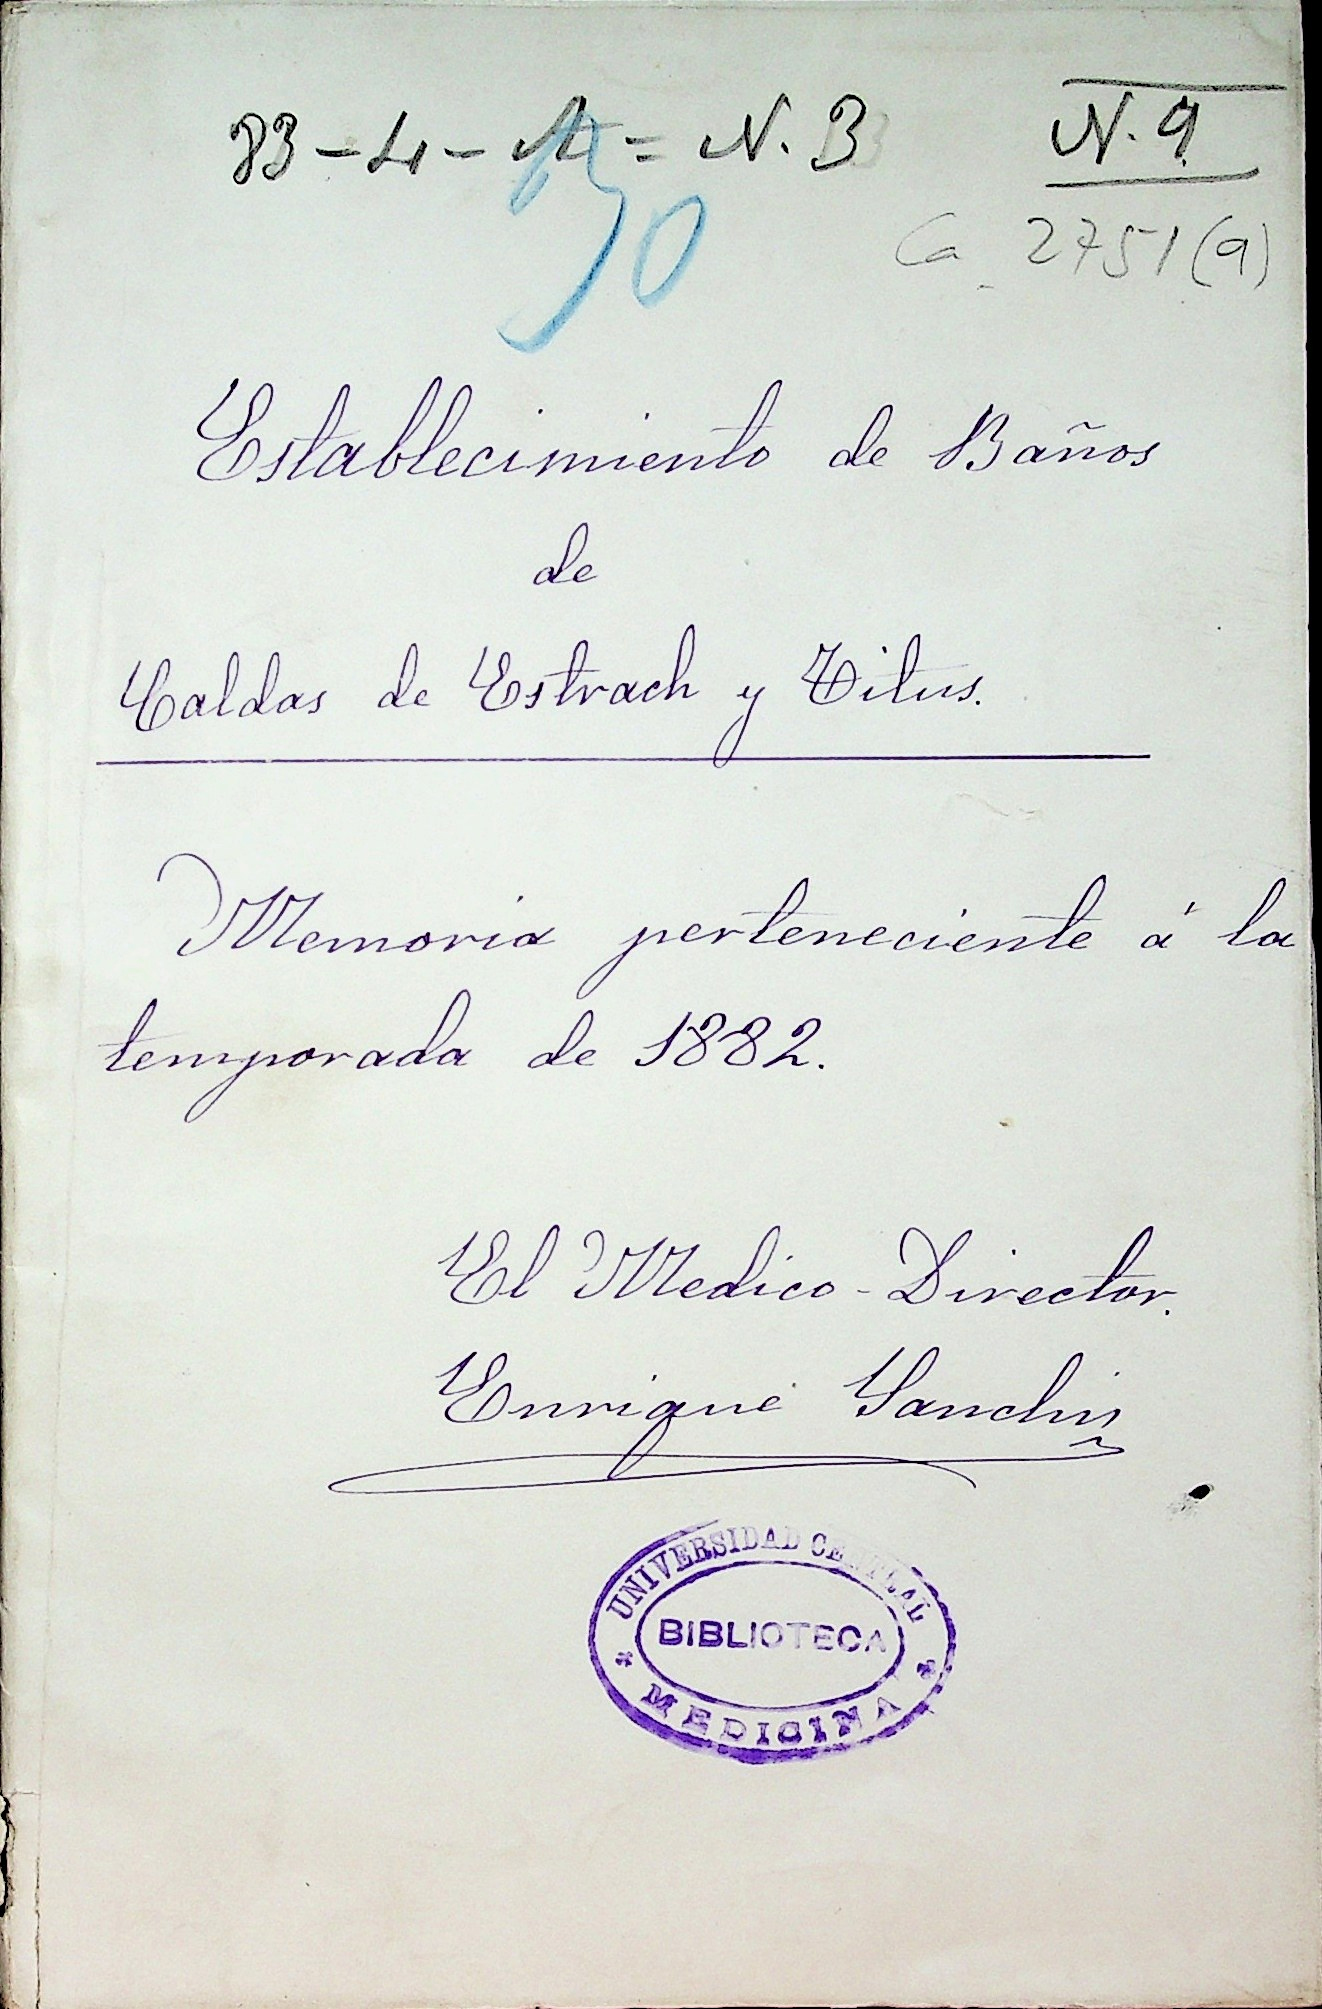 83-4-A=N.3
N.9
Ca 2751(9)
Establecimiento de Baños
de
Caldas de Estrach y Titus.
Memoria perteneciente á la
temporada de 1882.
El Medico-Director.
Enrique Sanchis
UNIVERSIDAD CENTRAL
BIBLIOTECA
MEDICINA